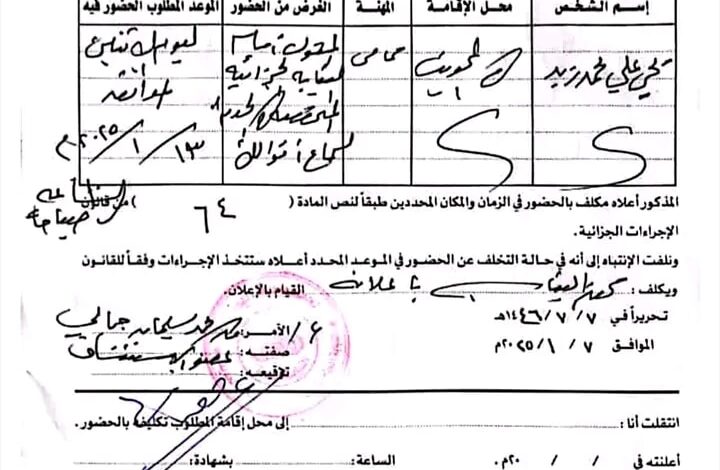 إسم الشخص محل الإقامة المهنة الغرض من الحضور الموعد المطلوب الحضور فيه
يحي علي محمد زيد المحويت محامي المثول أمام ليوم الاثنين
النيابة الجزائية الموافق
لسماع أقوالك ١٣/١/٢٠٢٥م
المذكور أعلاه مكلف بالحضور في الزمان والمكان المحددين طبقاً لنص المادة ( ٦٤ ) من قانون
الإجراءات الجزائية.
ونلفت الإنتباه إلى أنه في حالة التخلف عن الحضور في الموعد المحدد أعلاه ستتخذ الإجراءات وفقاً للقانون
ويكلف : القيام بالإعلان.
تحريراً في ٧/٧/١٤٤٦هـ
الموافق ٧/١/٢٠٢٥م
الآمر:
صفته:
توقيعه:
انتقلت أنا : إلى محل إقامة المطلوب تكليفه بالحضور.
أعلنته في / / ٢٠م. الساعة: بشهادة: